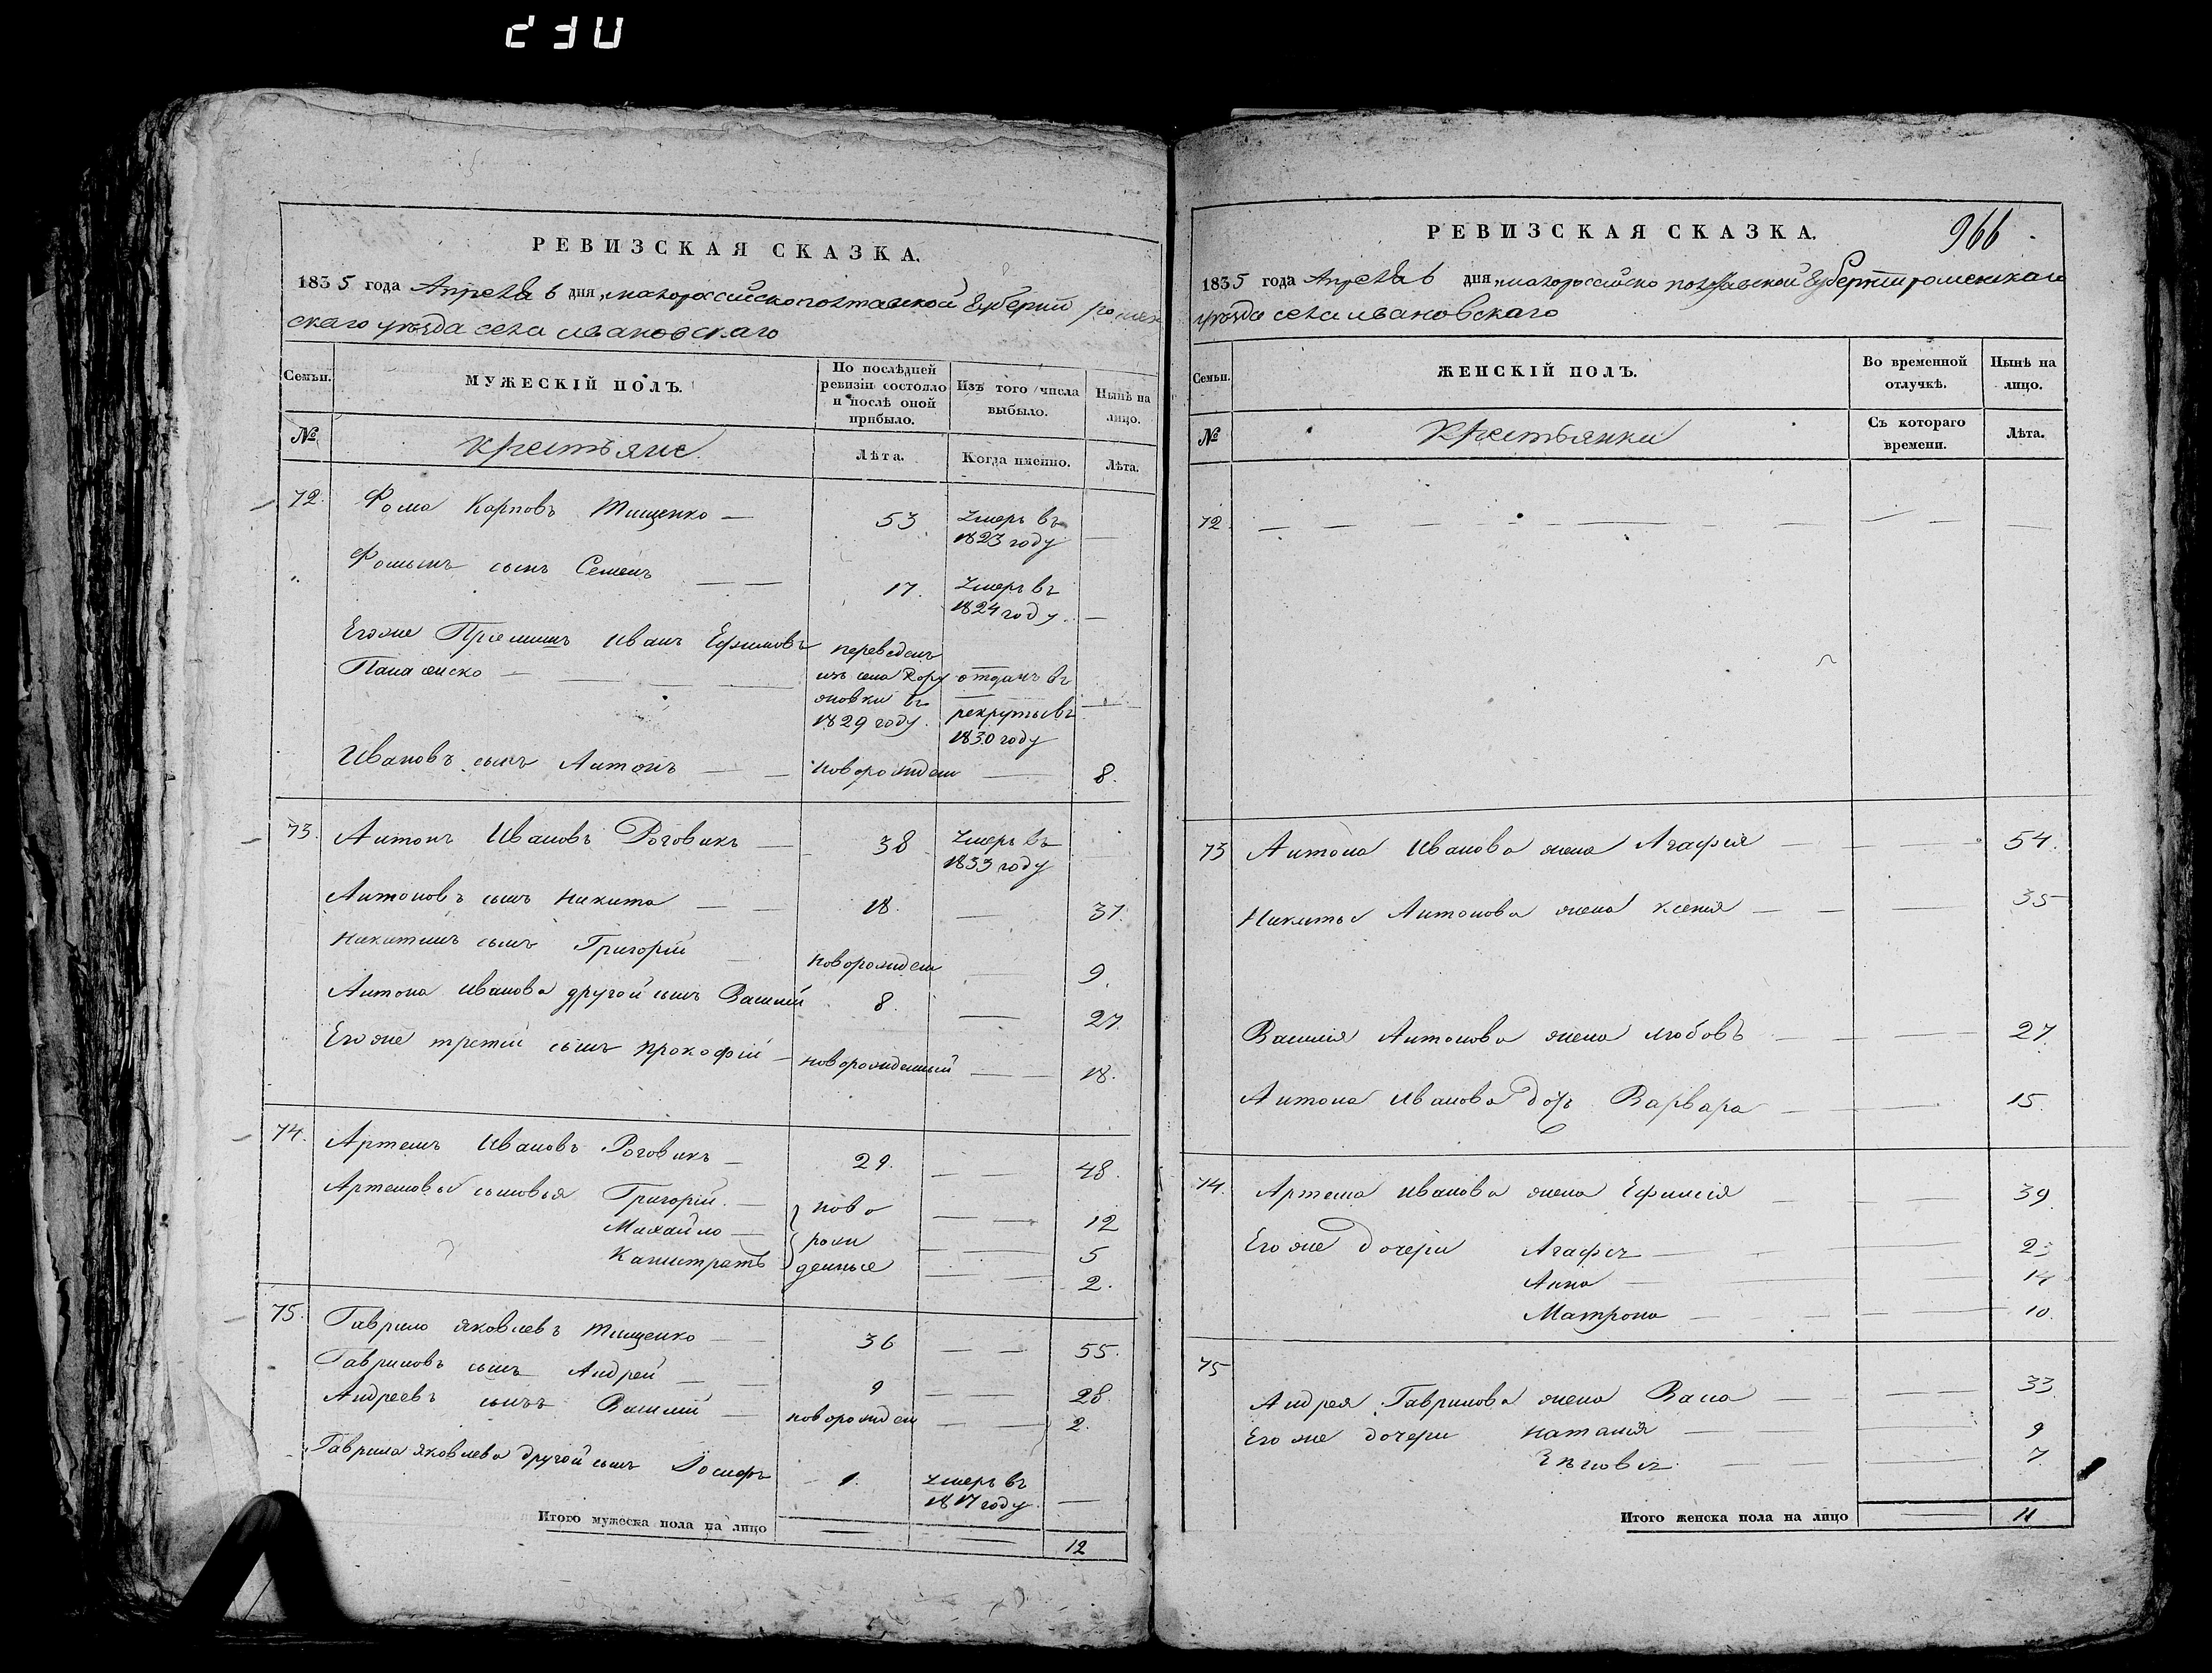 230
РЕВИЗСКАЯ СКАЗКА.
1835 года Апреля 6 дня, малороссийско полтавской Губернии ромен
скаго уезда села ивановскаго
Семьи.
МУЖЕСКІЙ ПОЛЪ.
По послѣдней ревизіи состояло и послѣ оной прибыло.
Изъ того числа выбыло.
Нынѣ на лицо.
№
Крестьяне
Лѣта.
Когда именно.
Лѣта.
72. Фома Карповъ Тищенко — 53 Умеръ въ 1823 году —
Фоминъ сынъ Семенъ — — 17. Умеръ въ 1824 году. —
Егоже Приемышъ Иванъ Ефимовъ переведенъ
Панаженско — изъ села отданъ въ
жовки въ рекруты въ —
1829 году. 1830 году
Ивановъ сынъ Антонъ — — новорожден — 8.
73. Антонъ Ивановъ Роговикъ — 38 Умеръ въ 1833 году —
Антоновъ сынъ Никита — — 18. — 37.
Никитинъ сынъ Григорій — новорожден — 9.
Антона Иванова другой сынъ Василій 8. — 27.
Егоже третій сынъ Прокофій — новорожденный — 18.
74. Артемъ Ивановъ Роговикъ — 29. — — 48.
Артемовы сыновья Григорій. — ново — — 12
Михайло — рож — — 5
Калистратъ денные — — 2.
75. Гаврило Яковлевъ Тищенко — 36 — — 55.
Гавриловъ сынъ Андрей — — 9 — — 28.
Андреевъ сынъ Василій — новорожден — — 2.
Гаврила Яковлева другой сынъ Іосифъ 1. Умеръ въ 1817 году. —
Итого мужеска пола на лицо 12
РЕВИЗСКАЯ СКАЗКА.
966
1835 года Апреля 6 дня, малороссийско полтавской Губернии роменскаго
уезда села ивановскаго
Семьи.
ЖЕНСКІЙ ПОЛЪ.
Во временной отлучкѣ.
Нынѣ на лицо.
№
Крестьянки
Съ котораго времени.
Лѣта.
72. — — — — — — —
73 Антона Иванова жена Агафія — — 54.
Никиты Антонова жена Ксенія — — 35
Василія Антонова жена Любовъ — — 27
Антона Иванова дочь Варвара — — 15.
74. Артема Иванова жена Ефимія — — 39.
Егоже дочери Агафія —
Анна — — 14
Матрона — — 10.
75
Андрея Гаврилова жена Васса — — 33.
Егоже дочери Наталія — — 9
Зѣновія — — 7.
Итого женска пола на лицо 11